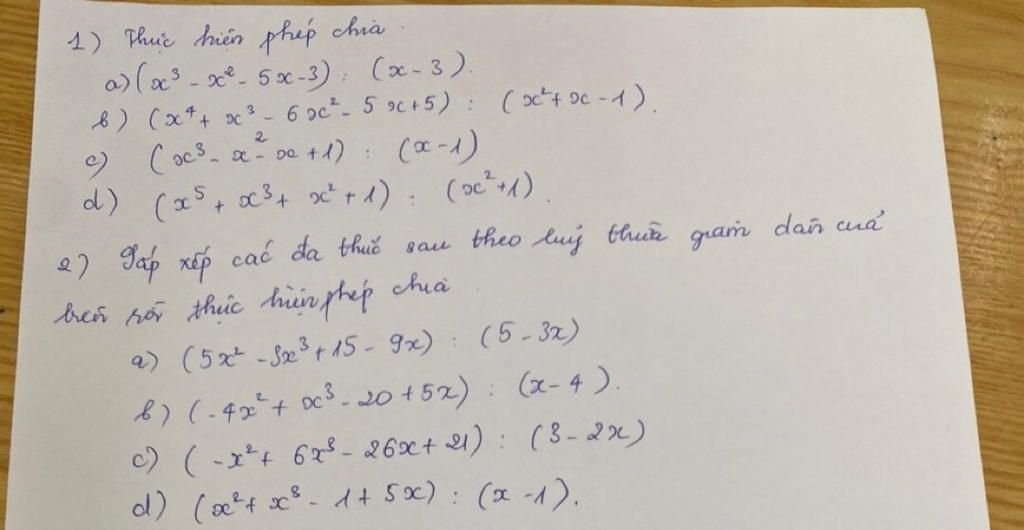 1) Thực hiện phép chia.
a) (x³ - x² - 5x - 3) : (x - 3).
b) (x⁴ + x³ - 6x² - 5x + 5) : (x² + x - 1).
c) (x³ - x² - x + 1) : (x - 1)
d) (x⁵ + x³ + x² + 1) : (x² + 1).
2) Sắp xếp các đa thức sau theo luỹ thừa giảm dần của
biến rồi thực hiện phép chia
a) (5x² - 3x³ + 15 - 9x) : (5 - 3x)
b) (-4x² + x³ - 20 + 5x) : (x - 4).
c) (-x² + 6x³ - 26x + 21) : (3 - 2x)
d) (x² + x³ - 1 + 5x) : (x - 1).